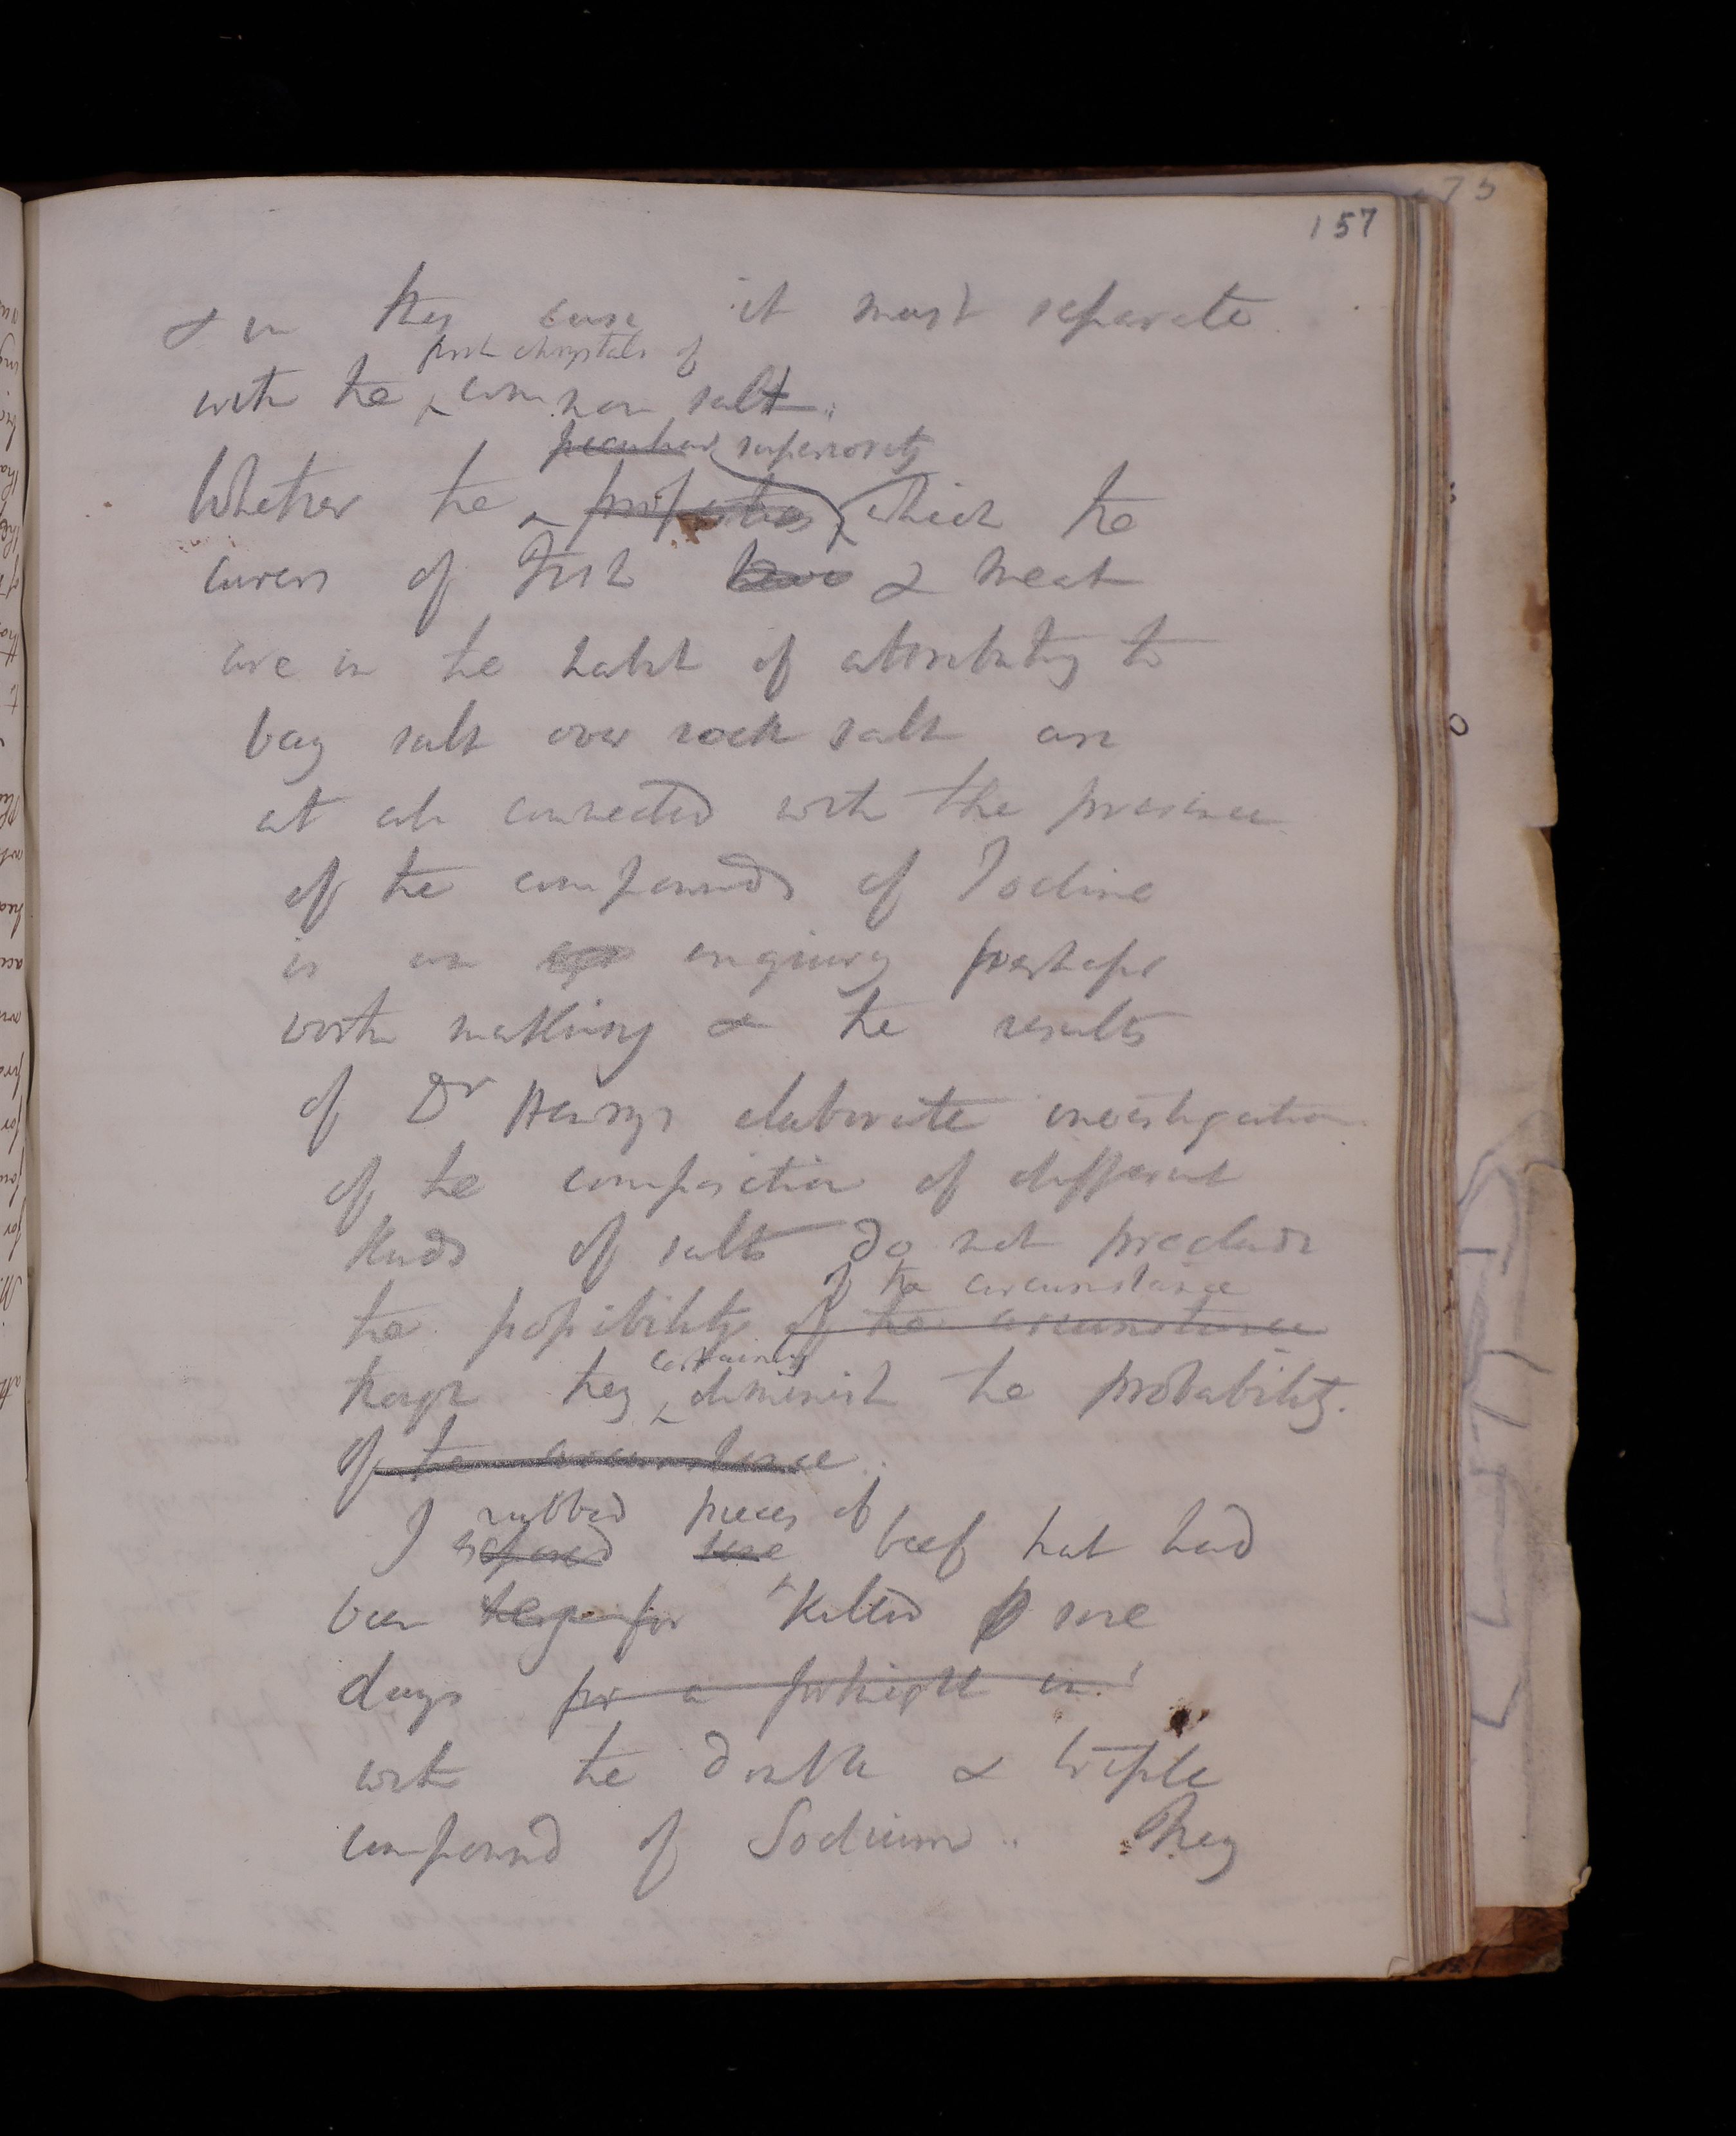 157
& in this case it must separate
first chrystals of
with the common salt.
peculiar superiority
Whether the properties which the
curers of Fish have & meat
are in the habit of attributing to
bay salt over rock salt are
at all connected with the presence
of the compounds of Iodine
is an enquiry perhaps
worth making & the results
of Dr Henrys elaborate investigation
of the composition of different
kinds of salts do not preclude
of the circumstance
the possibility of the circumstance
certainly
though they diminish the probability.
of the circumstance
rubbed pieces of
I exposed some beef that had
been killed some
days for a fortnight in
with the double & triple
compound of Sodium. They